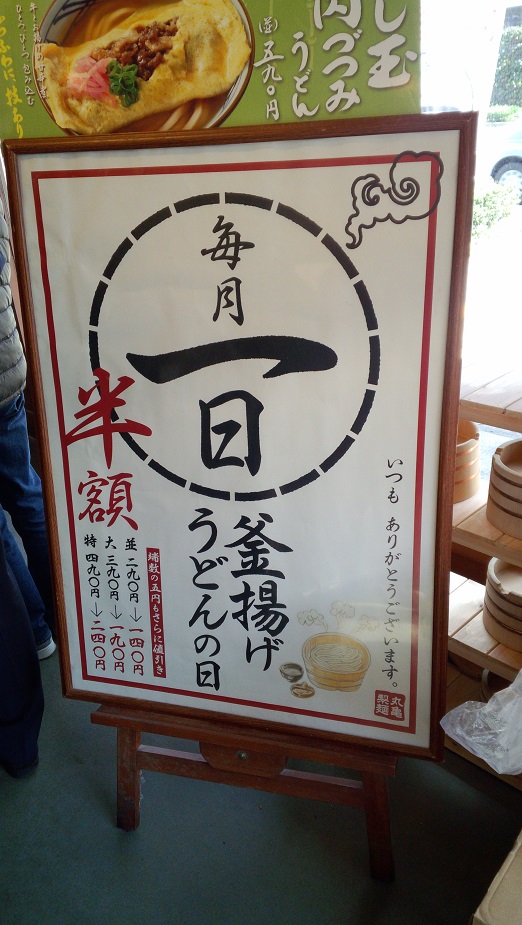 し玉
肉づつみ
うどん
並 五九〇円
ひとつひとつ包み込む
ふわふわに、技あり
毎月
一
日
釜揚げ
うどんの日
半額
端数の五円もさらに値引き
並 二九〇円→一四〇円
大 三九〇円→一九〇円
特 四九〇円→二四〇円
いつも ありがとうございます。
丸亀
製麺